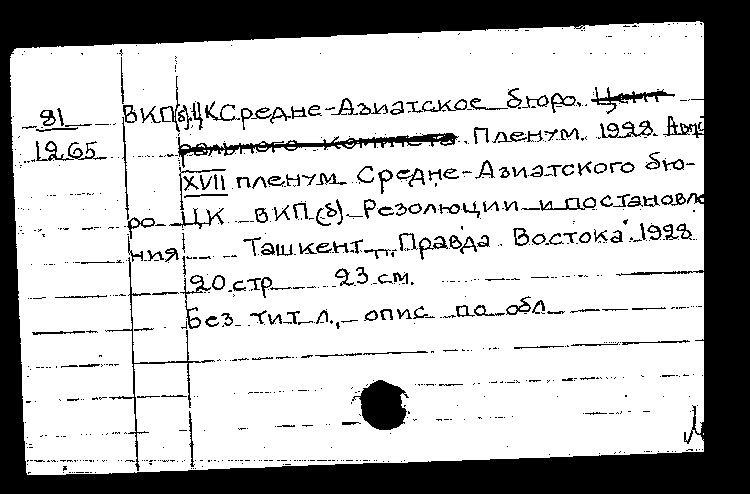 81 ВКП(б) ЦК Средне-Азиатское бюро.
1265 Пленум. 1928
XVII пленум Средне-Азиатского бю-
ро ЦК ВКП(б) Резолюции и постановле
ния Ташкент, "Правда Востока". 1928
20 стр 23 см.
Без тит л., опис по обл